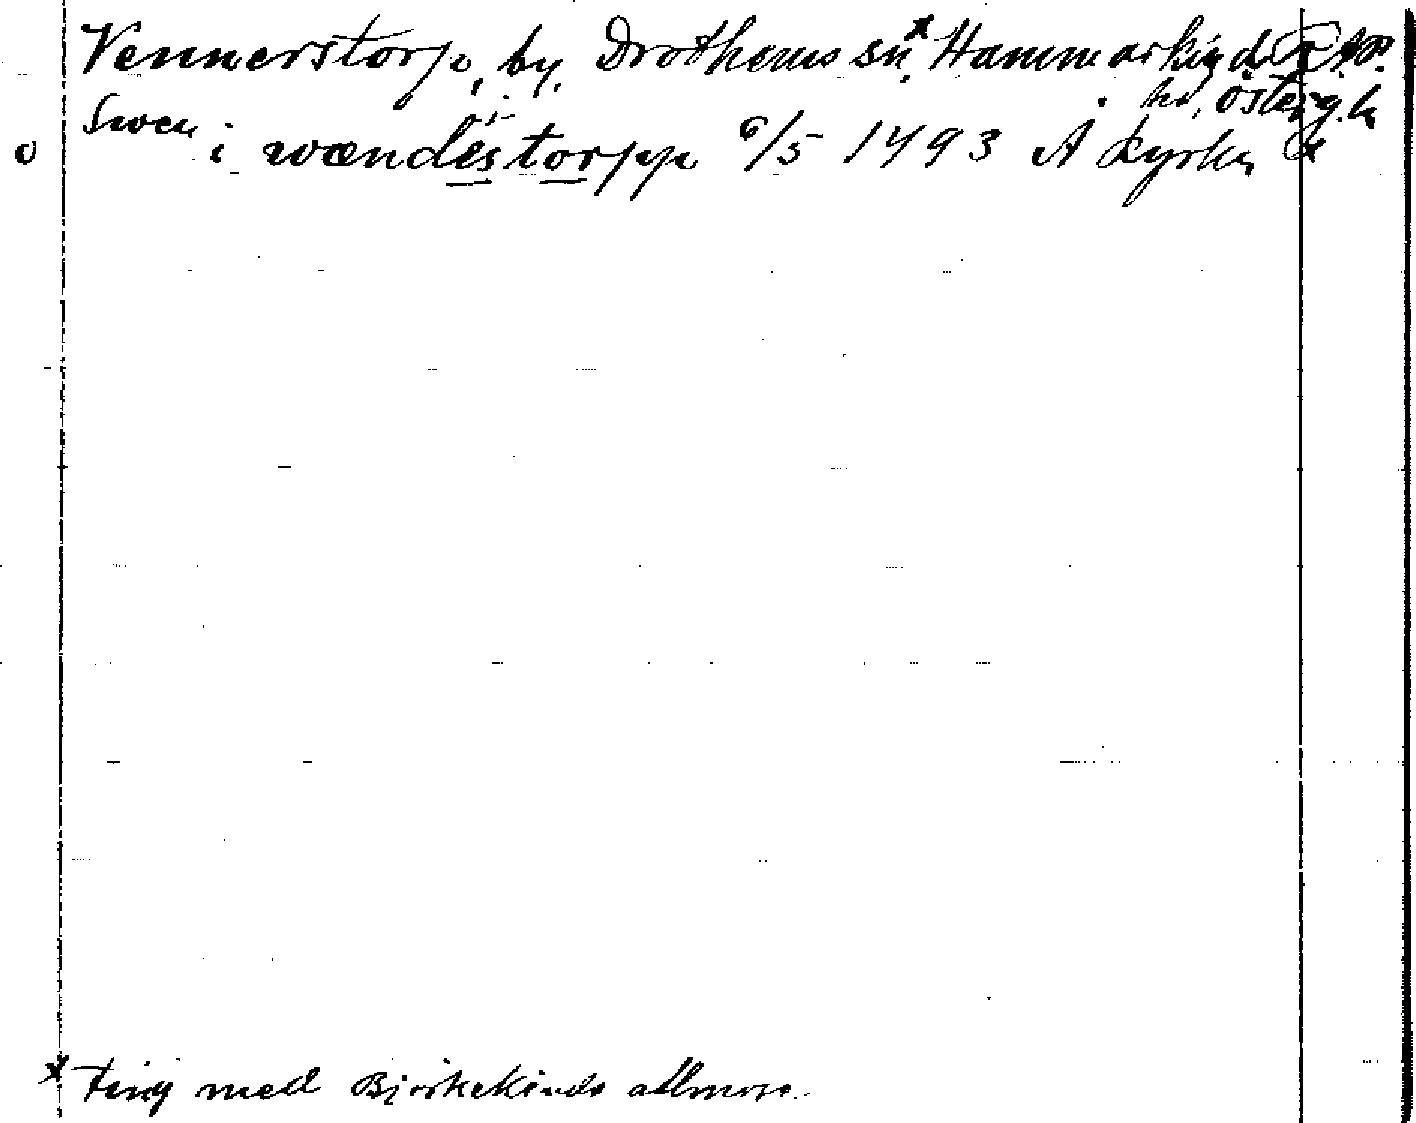 Vennerstorp, by, Drothems sn,x Hammarkinds
hd, Österg. l.
o Swen i wændestorpp 6/5 1493 Å kyrka
x Ting med Bjärkekinds allmoge.